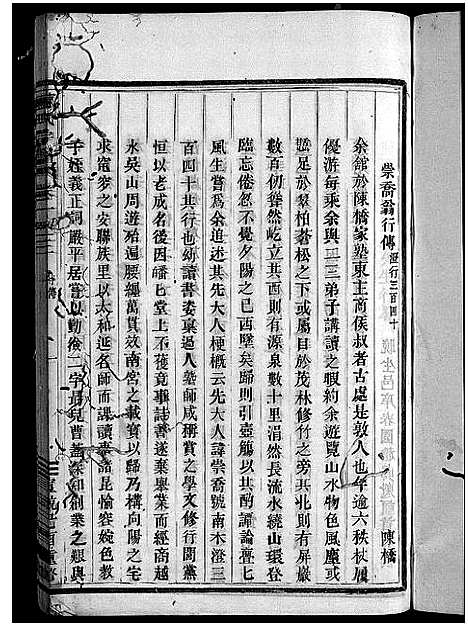 崇喬翁行傳 澄行三百四十 陳橋
余舘於陳橋家塾東主商侯叔者古處是敦人也年逾六秩杖履
優游每乘余與二三弟子講讀之暇約余遊覽山水物色風塵或
憇足於翠柏蒼松之下或屬目於茂林修竹之旁共北則有屏巖
數百仞聳然屹立共前則有源泉數十里涓然長流水繞山環登
臨忘倦忽不覺夕陽之已西墜矣歸則引壺觴以共酌譚論亹亹
風生嘗爲余追述其先大人梗概云先大人諱崇喬號南木澄三
百四十其行也幼讀書姿禀過人塾師咸稱賞之學文修行聞黨
恒以老成名後因皤皤在堂上不獲竟事誌書遂棄舉業而經商越
水吳山周遊殆遍腰纏萬貫效南宮之載寳以歸乃構向陽之宅
求甯麥之安聯族里以太和延名師而課讀羣諸昆愉容婉色教
子姪義正詞嚴平居嘗以勤儉二字毋兒曹蓋深知創業之艱與